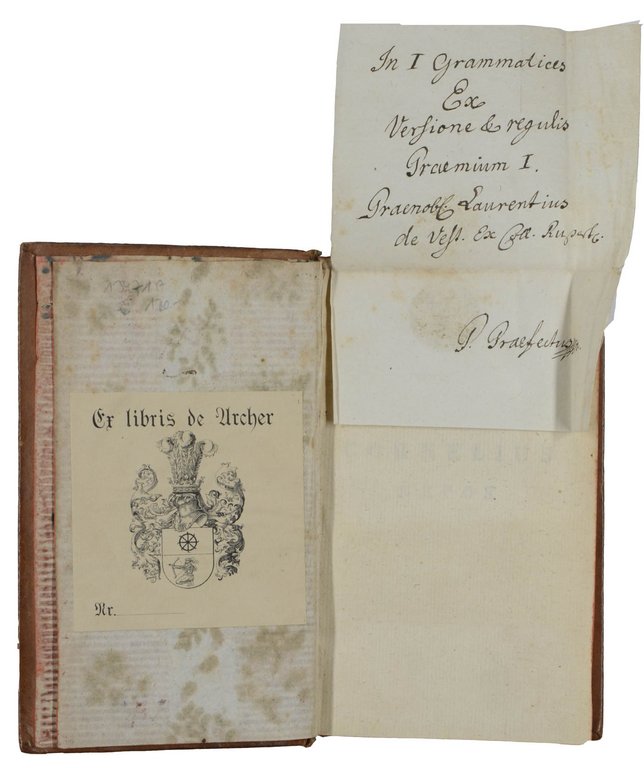 In I Grammatices
Ex
Versione & regulis
Praemium I.
Praenob. Laurentius
de Vest. Ex Coll. Rupert.
P. Praefectus
Ex libris de Archer
Nr.
CORNELIUS